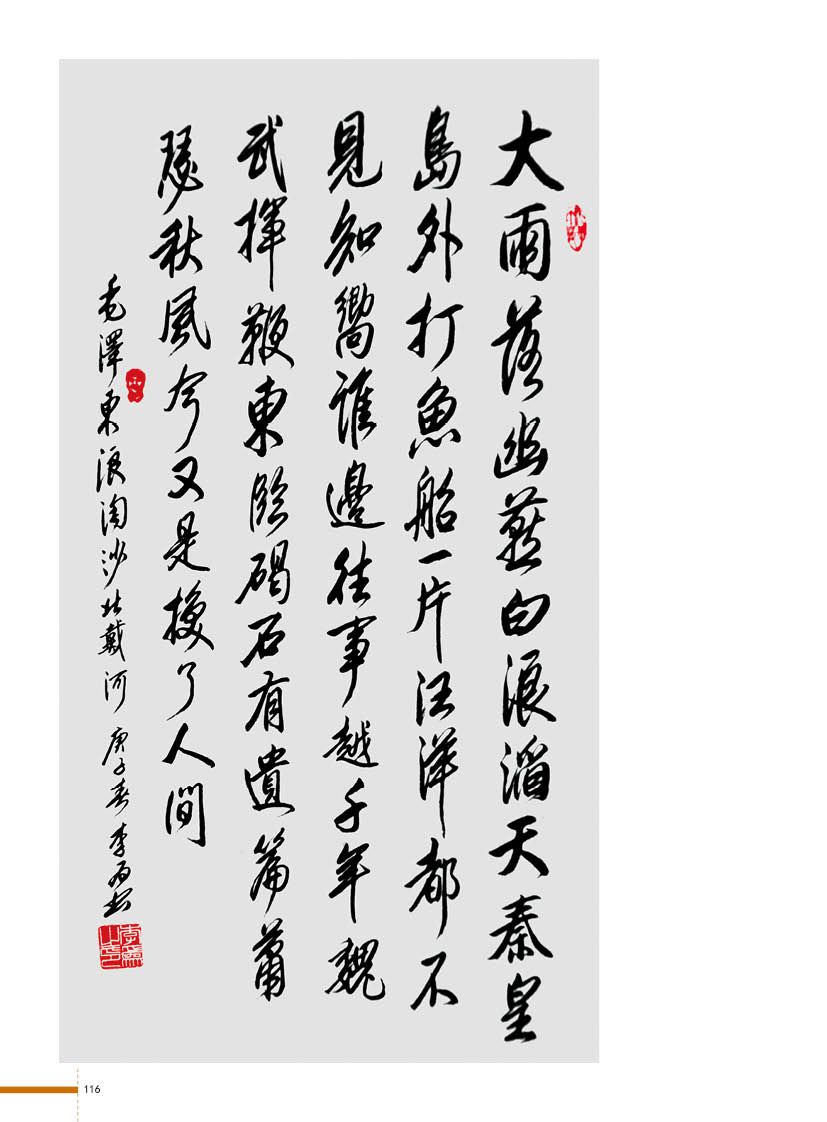 大雨落幽燕白浪滔天秦皇
島外打魚船一片汪洋都不
見知嚮誰邊往事越千年魏
武揮鞭東臨碣石有遺篇蕭
瑟秋風今又是換了人間
毛澤東浪淘沙北戴河 庚子春李为
116